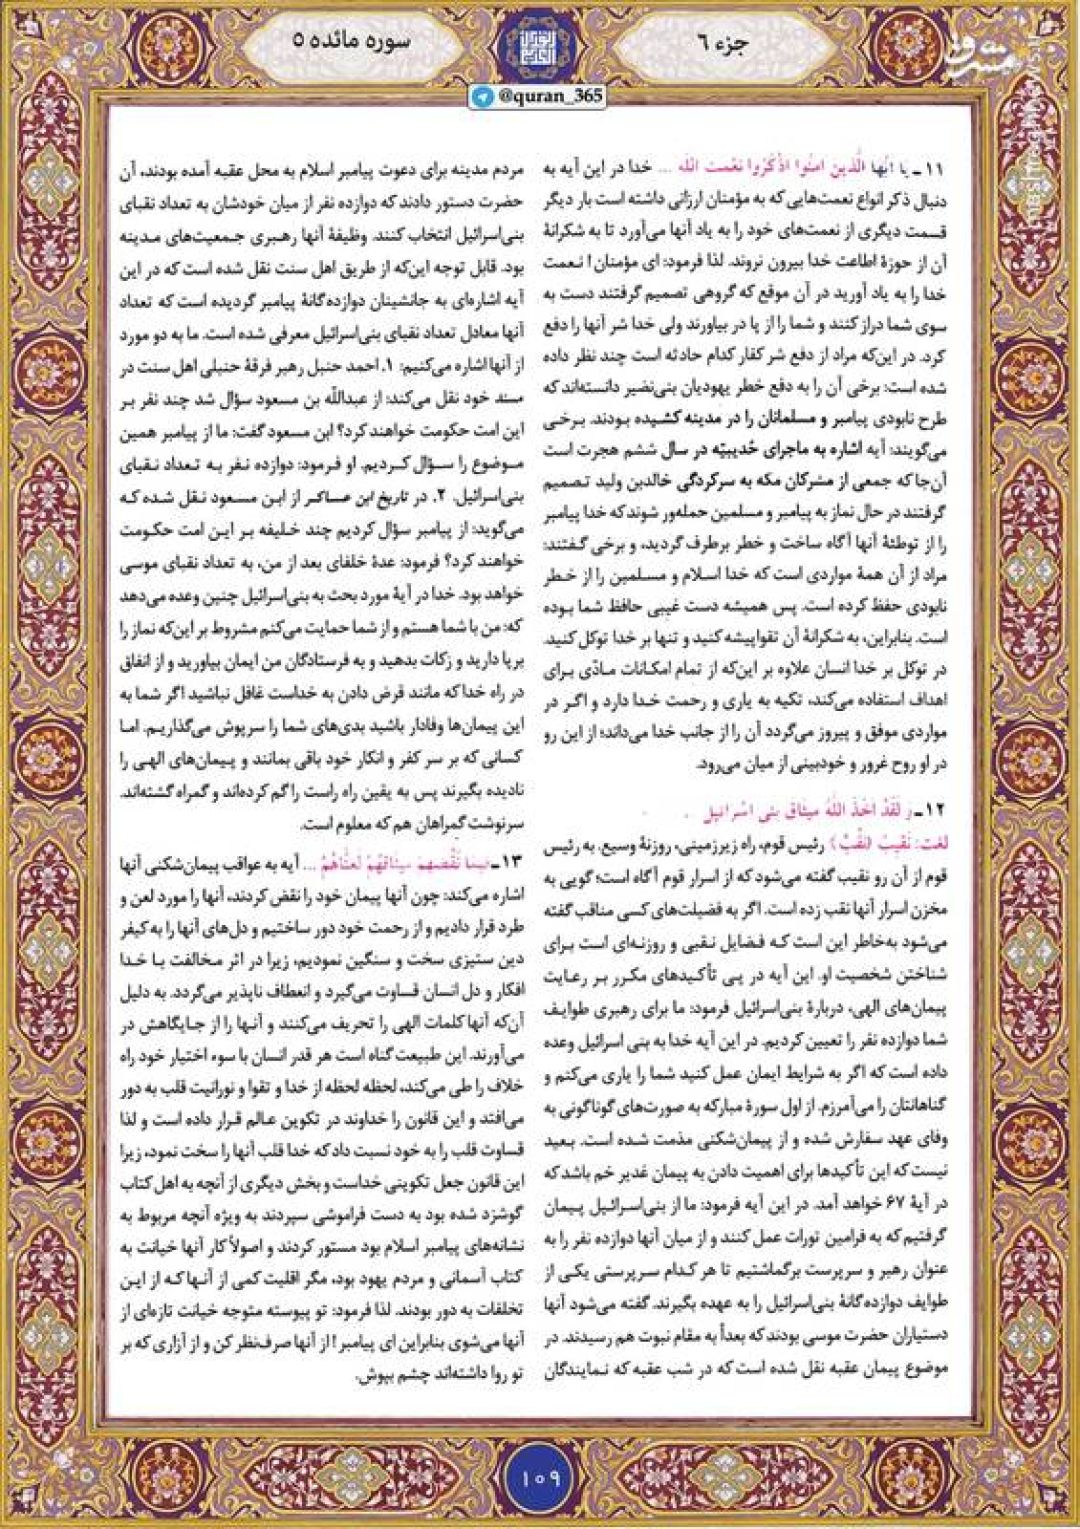 جزء ۶
سوره مائده ۵
@quran_365
۱۱ـ یا ایُّها الَّذین امنُوا اذْکُرُوا نعْمت اللَّه ... خدا در این آیه به
دنبال ذکر انواع نعمت‌هایی که به مؤمنان ارزانی داشته است بار دیگر
قسمت دیگری از نعمت‌های خود را به یاد آنها می‌آورد تا به شکرانهٔ
آن از حوزهٔ اطاعت خدا بیرون نروند. لذا فرمود: ای مؤمنان! نعمت
خدا را به یاد آورید در آن موقع که گروهی تصمیم گرفتند دست به
سوی شما دراز کنند و شما را از پا در بیاورند ولی خدا شر آنها را دفع
کرد. در این‌که مراد از دفع شر کفار کدام حادثه است چند نظر داده
شده است: برخی آن را به دفع خطر یهودیان بنی‌نضیر دانسته‌اند که
طرح نابودی پیامبر و مسلمانان را در مدینه کشیده بودند. برخی
می‌گویند: آیه اشاره به ماجرای حُدیبیّه در سال ششم هجرت است
آن‌جا که جمعی از مشرکان مکه به سرکردگی خالدبن ولید تصمیم
گرفتند در حال نماز به پیامبر و مسلمین حمله‌ور شوند که خدا پیامبر
را از توطئهٔ آنها آگاه ساخت و خطر برطرف گردید، و برخی گفتند:
مراد از آن همهٔ مواردی است که خدا اسلام و مسلمین را از خطر
نابودی حفظ کرده است. پس همیشه دست غیبی حافظ شما بوده
است. بنابراین، به شکرانهٔ آن تقواپیشه کنید و تنها بر خدا توکل کنید.
در توکل بر خدا انسان علاوه بر این‌که از تمام امکانات مادّی برای
اهداف استفاده می‌کند، تکیه به یاری و رحمت خدا دارد و اگر در
مواردی موفق و پیروز می‌گردد آن را از جانب خدا می‌داند؛ از این رو
در او روح غرور و خودبینی از میان می‌رود.
۱۲ـ و لَقَدْ اخَذَ اللَّهُ میثاق بنی اسْرائیل
لغت: نَقیبْ (نَقْبْ) رئیس قوم، راه زیرزمینی، روزنهٔ وسیع. به رئیس
قوم از آن رو نقیب گفته می‌شود که از اسرار قوم آگاه است؛ گویی به
مخزن اسرار آنها نقب زده است. اگر به فضیلت‌های کسی مناقب گفته
می‌شود به‌خاطر این است که فضایل نقبی و روزنه‌ای است برای
شناختن شخصیت او. این آیه در پی تأکیدهای مکرر بر رعایت
پیمان‌های الهی، دربارهٔ بنی‌اسرائیل فرمود: ما برای رهبری طوایف
شما دوازده نفر را تعیین کردیم. در این آیه خدا به بنی اسرائیل وعده
داده است که اگر به شرایط ایمان عمل کنید شما را یاری می‌کنم و
گناهانتان را می‌آمرزم. از اول سورهٔ مبارکه به صورت‌های گوناگونی به
وفای عهد سفارش شده و از پیمان‌شکنی مذمت شده است. بعید
نیست که این تأکیدها برای اهمیت دادن به پیمان غدیر خم باشد که
در آیهٔ ۶۷ خواهد آمد. در این آیه فرمود: ما از بنی‌اسرائیل پیمان
گرفتیم که به فرامین تورات عمل کنند و از میان آنها دوازده نفر را به
عنوان رهبر و سرپرست برگماشتیم تا هر کدام سرپرستی یکی از
طوایف دوازده‌گانهٔ بنی‌اسرائیل را به عهده بگیرند. گفته می‌شود آنها
دستیاران حضرت موسی بودند که بعدأ به مقام نبوت هم رسیدند. در
موضوع پیمان عقبه نقل شده است که در شب عقبه که نمایندگان
مردم مدینه برای دعوت پیامبر اسلام به محل عقبه آمده بودند، آن
حضرت دستور دادند که دوازده نفر از میان خودشان به تعداد نقبای
بنی‌اسرائیل انتخاب کنند. وظیفهٔ آنها رهبری جمعیت‌های مدینه
بود. قابل توجه این‌که از طریق اهل سنت نقل شده است که در این
آیه اشاره‌ای به جانشینان دوازده‌گانهٔ پیامبر گردیده است که تعداد
آنها معادل تعداد نقبای بنی‌اسرائیل معرفی شده است. ما به دو مورد
از آنها اشاره می‌کنیم: ۱. احمد حنبل رهبر فرقهٔ حنبلی اهل سنت در
مسند خود نقل می‌کند: از عبداللّه بن مسعود سؤال شد چند نفر بر
این امت حکومت خواهند کرد؟ ابن مسعود گفت: ما از پیامبر همین
موضوع را سؤال کردیم. او فرمود: دوازده نفر به تعداد نقبای
بنی‌اسرائیل. ۲. در تاریخ ابن عساکر از ابن مسعود نقل شده که
می‌گوید: از پیامبر سؤال کردیم چند خلیفه بر این امت حکومت
خواهند کرد؟ فرمود: عدهٔ خلفای بعد از من، به تعداد نقبای موسی
خواهد بود. خدا در آیهٔ مورد بحث به بنی‌اسرائیل چنین وعده می‌دهد
که: من با شما هستم و از شما حمایت می‌کنم مشروط بر این‌که نماز را
برپا دارید و زکات بدهید و به فرستادگان من ایمان بیاورید و از انفاق
در راه خدا که مانند قرض دادن به خداست غافل نباشید اگر شما به
این پیمان‌ها وفادار باشید بدی‌های شما را سرپوش می‌گذاریم. اما
کسانی که بر سر کفر و انکار خود باقی بمانند و پیمان‌های الهی را
نادیده بگیرند پس به یقین راه راست را گم کرده‌اند و گمراه گشته‌اند.
سرنوشت گمراهان هم که معلوم است.
۱۳ـ فبما نَقْضهمْ میثاقهُمْ لَعنَّاهُمْ ... آیه به عواقب پیمان‌شکنی آنها
اشاره می‌کند: چون آنها پیمان خود را نقض کردند، آنها را مورد لعن و
طرد قرار دادیم و از رحمت خود دور ساختیم و دل‌های آنها را به کیفر
دین ستیزی سخت و سنگین نمودیم، زیرا در اثر مخالفت با خدا
افکار و دل انسان قساوت می‌گیرد و انعطاف ناپذیر می‌گردد. به دلیل
آن‌که آنها کلمات الهی را تحریف می‌کنند و آنها را از جایگاهش در
می‌آورند. این طبیعت گناه است هر قدر انسان با سوء اختیار خود راه
خلاف را طی می‌کند، لحظه لحظه از خدا و تقوا و نورانیت قلب به دور
می‌افتد و این قانون را خداوند در تکوین عالم قرار داده است و لذا
قساوت قلب را به خود نسبت داد که خدا قلب آنها را سخت نمود، زیرا
این قانون جعل تکوینی خداست و بخش دیگری از آنچه به اهل کتاب
گوشزد شده بود به دست فراموشی سپردند به ویژه آنچه مربوط به
نشانه‌های پیامبر اسلام بود مستور کردند و اصولاً کار آنها خیانت به
کتاب آسمانی و مردم یهود بود، مگر اقلیت کمی از آنها که از این
تخلفات به دور بودند. لذا فرمود: تو پیوسته متوجه خیانت تازه‌ای از
آنها می‌شوی بنابراین ای پیامبر! از آنها صرف‌نظر کن و از آزاری که بر
تو روا داشته‌اند چشم بپوش.
۱۰۹